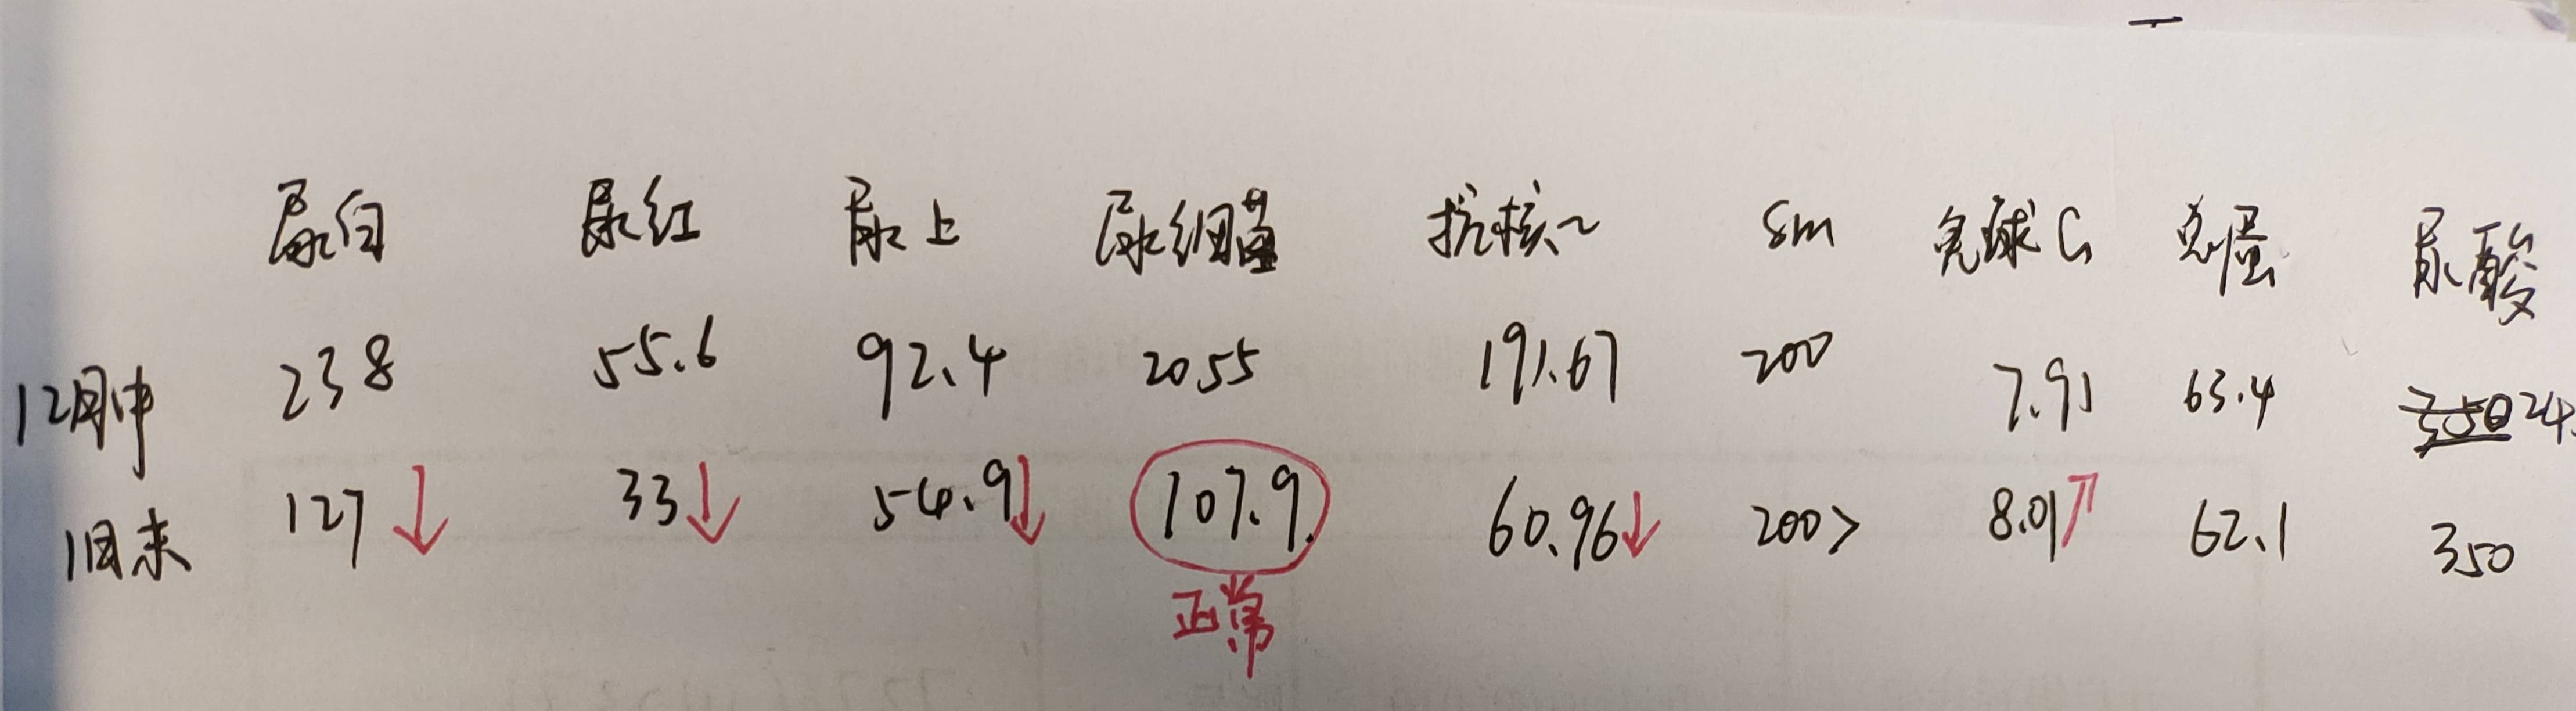 尿白 尿红 尿上 尿细菌 抗核~ sm 免球G 总蛋 尿酸
12月中 238 55.6 92.4 2055 191.67 200 7.91 63.4 350 24
1月末 127↓ 33↓ 54.9↓ 107.9 60.96↓ 200> 8.01↑ 62.1 350
正常